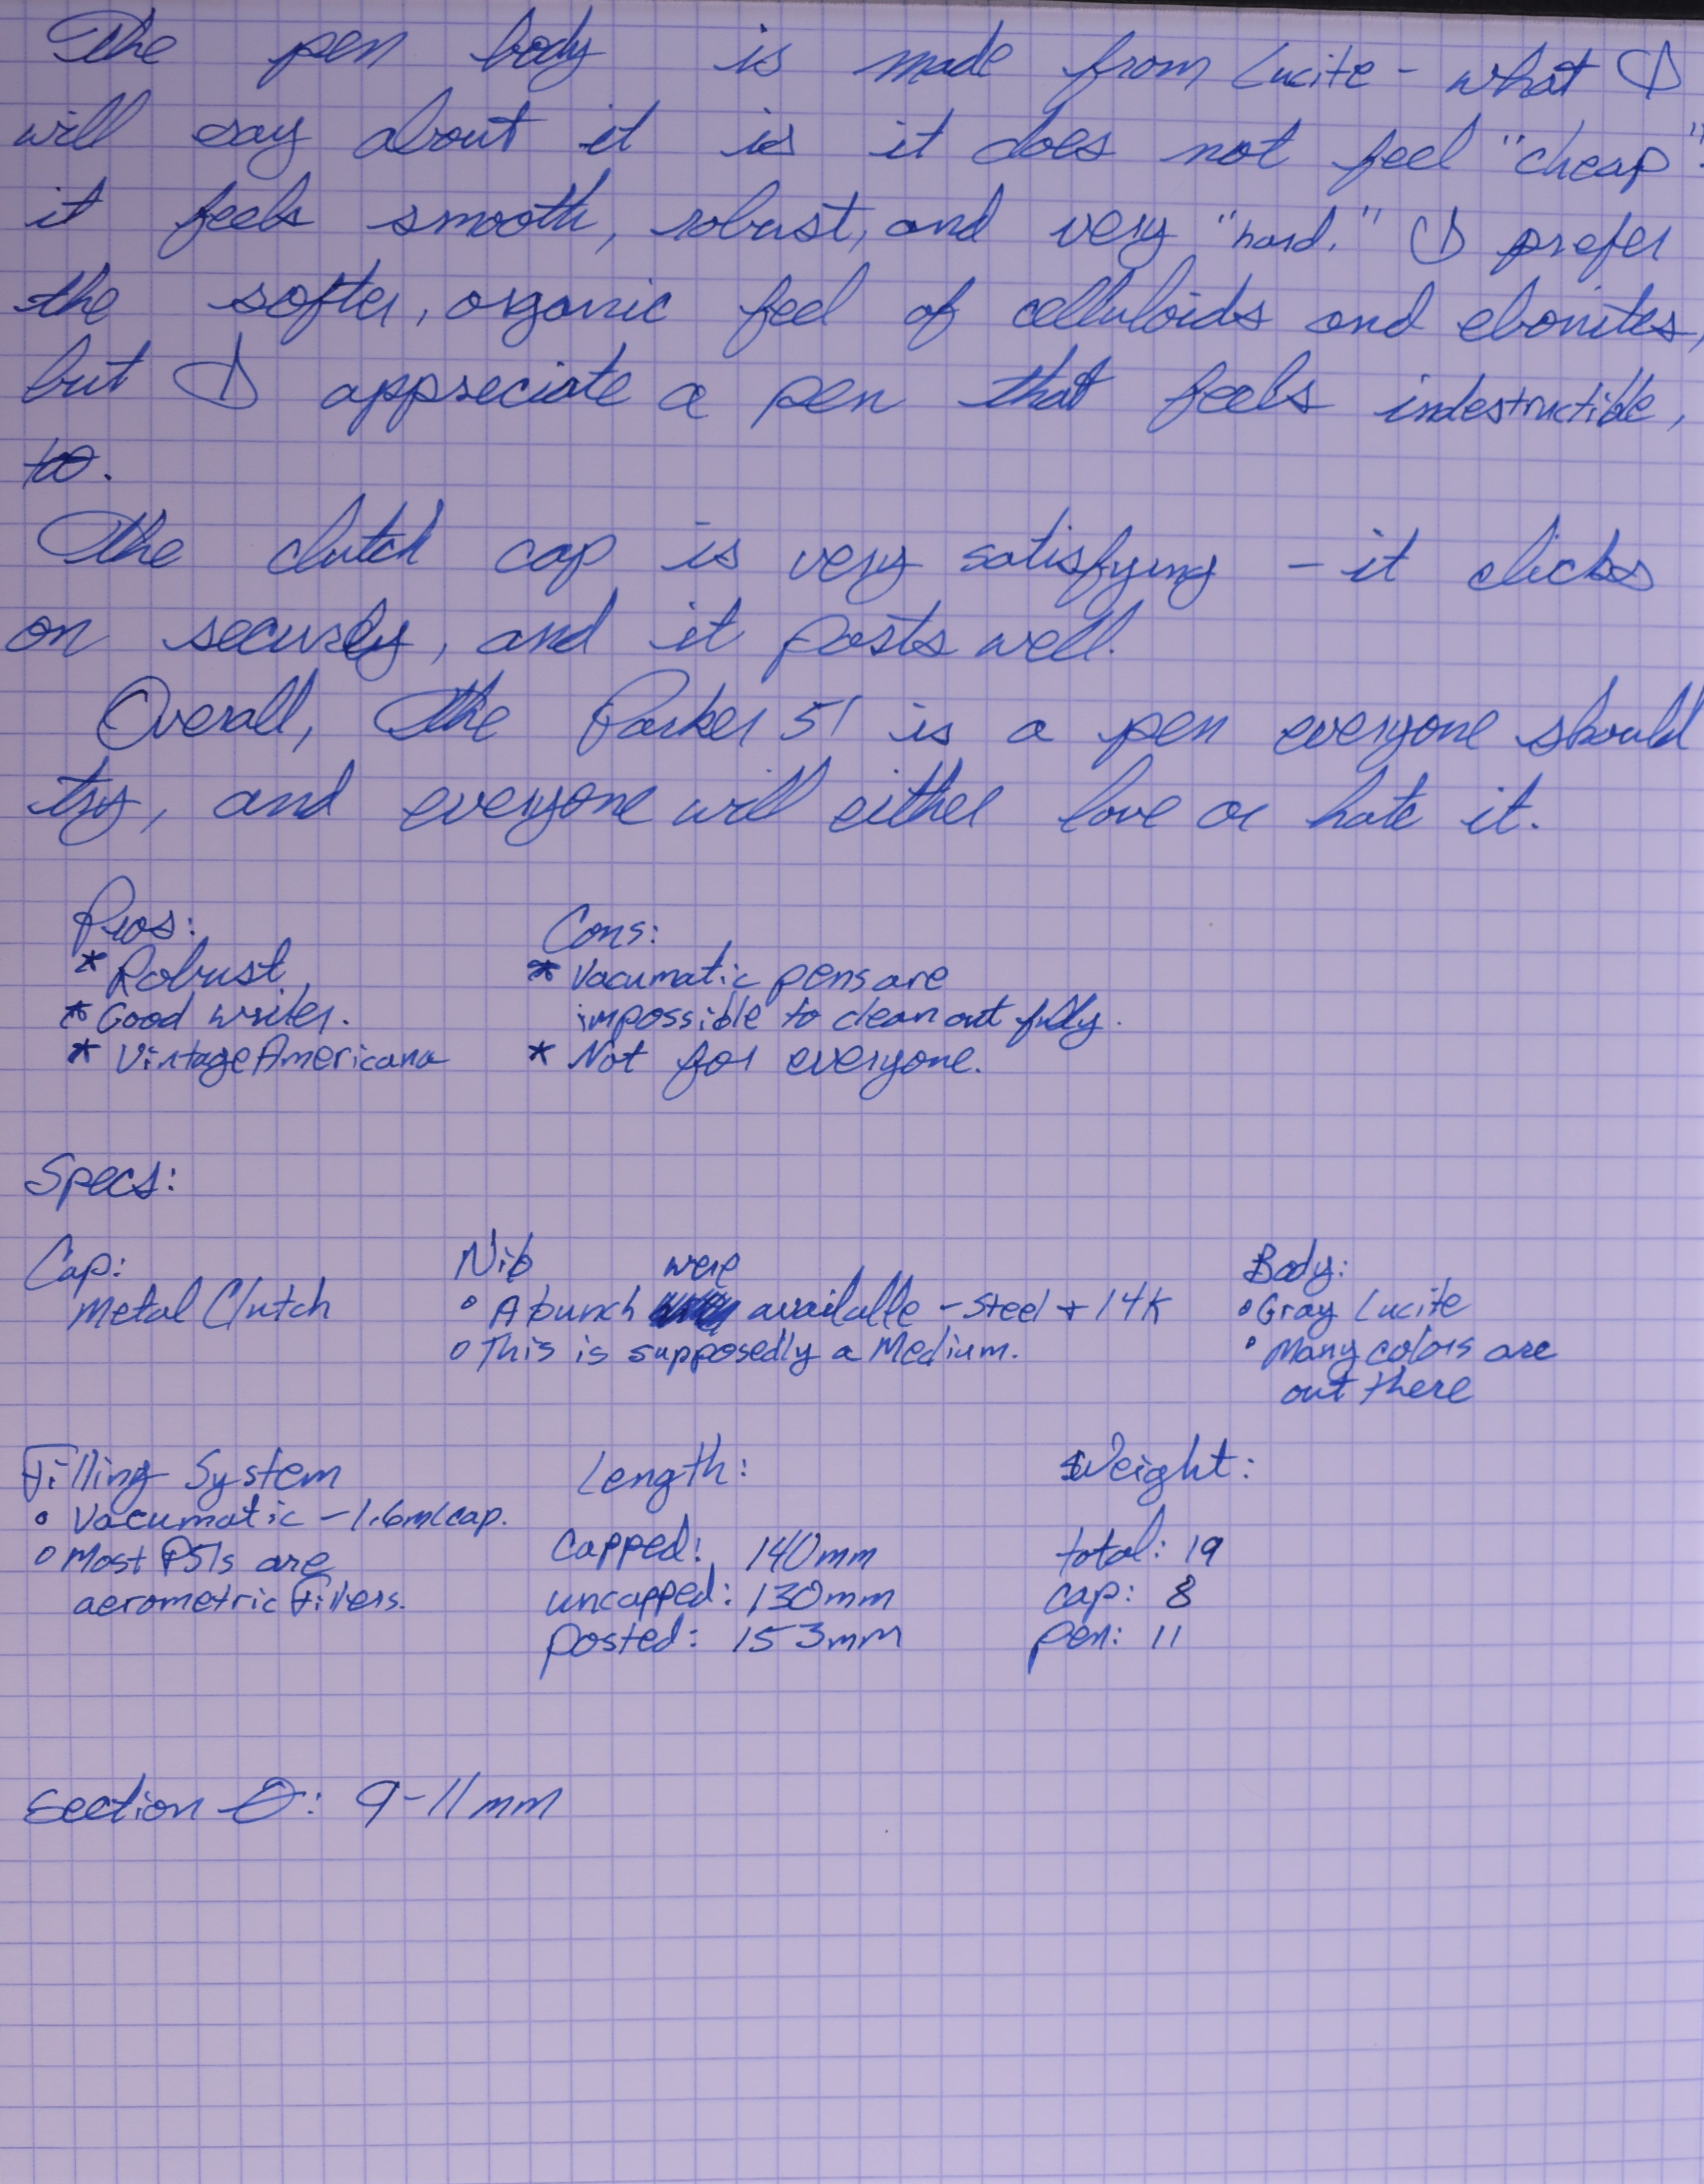 The pen body is made from Lucite - what I
will say about it is it does not feel "cheap".
it feels smooth, robust, and very "hard." I prefer
the softer, organic feel of celluloids and ebonites,
but I appreciate a pen that feels indestructible,
to.
The clutch cap is very satisfying - it clicks
on securely, and it posts well.
Overall, the Parker 51 is a pen everyone should
try, and everyone will either love or hate it.
Pros:
* Robust
* Good writer.
* Vintage Americana
Cons:
* Vacumatic pens are
impossible to clean out fully.
* Not for everyone.
Specs:
Cap:
Metal Clutch
Nib
° A bunch were available - Steel + 14K
° This is supposedly a Medium.
Body:
° Gray Lucite
° Many colors are
out there
Filling System
° Vacumatic - 1.6ml cap.
° Most P51s are
aerometric fillers.
Length:
Capped: 140mm
uncapped: 130mm
posted: 153mm
Weight:
total: 19
cap: 8
pen: 11
Section Ø: 9-11mm